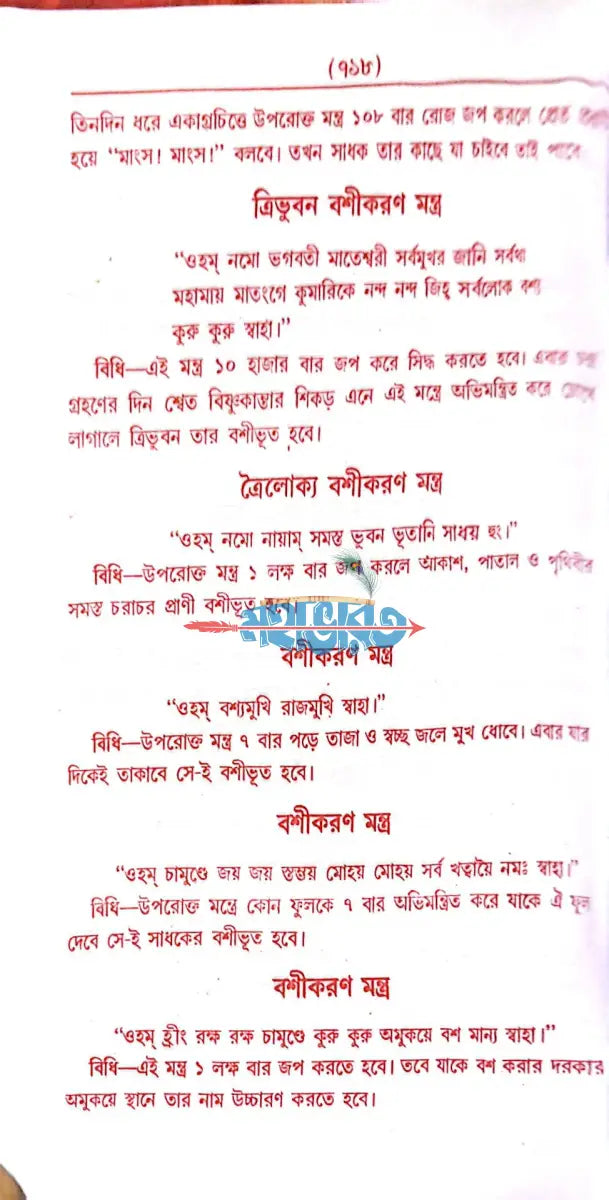 (৭১৮)
তিনদিন ধরে একাগ্রচিত্তে উপরোক্ত মন্ত্র ১০৮ বার রোজ জপ করলে প্রেত
হয়ে “মাংস! মাংস!” বলবে। তখন সাধক তার কাছে যা চাইবে তাই পাবে
ত্রিভুবন বশীকরণ মন্ত্র
“ওহম্ নমো ভগবতী মাতেশ্বরী সর্বমুখর জানি সর্বথা
মহামায় মাতংগে কুমারিকে নন্দ নন্দ জিহ্ব সর্বলোক বশ্য
কুরু কুরু স্বাহা।”
বিধি—এই মন্ত্র ১০ হাজার বার জপ করে সিদ্ধ করতে হবে। এবার
গ্রহণের দিন শ্বেত বিষ্ণুকান্তার শিকড় এনে এই মন্ত্রে অভিমন্ত্রিত করে
লাগালে ত্রিভুবন তার বশীভূত হবে।
ত্রৈলোক্য বশীকরণ মন্ত্র
“ওহম্ নমো নায়াম্ সমস্ত ভুবন ভূতানি সাধয় হুং।”
বিধি—উপরোক্ত মন্ত্র ১ লক্ষ বার জপ করলে আকাশ, পাতাল ও পৃথিবীর
সমস্ত চরাচর প্রাণী বশীভূত হবে।
মহাভারত
বশীকরণ মন্ত্র
“ওহম্ বশ্যমুখি রাজমুখি স্বাহা।”
বিধি—উপরোক্ত মন্ত্র ৭ বার পড়ে তাজা ও স্বচ্ছ জলে মুখ ধোবে। এবার যার
দিকেই তাকাবে সে-ই বশীভূত হবে।
বশীকরণ মন্ত্র
“ওহম্ চামুণ্ডে জয় জয় স্তম্ভয় মোহয় মোহয় সর্ব খত্বায়ৈ নমঃ স্বাহা।”
বিধি—উপরোক্ত মন্ত্রে কোন ফুলকে ৭ বার অভিমন্ত্রিত করে যাকে ঐ ফুল
দেবে সে-ই সাধকের বশীভূত হবে।
বশীকরণ মন্ত্র
“ওহম্ হ্রীং রক্ষ রক্ষ চামুণ্ডে কুরু কুরু অমুকয়ে বশ মান্য স্বাহা।”
বিধি—এই মন্ত্র ১ লক্ষ বার জপ করতে হবে। তবে যাকে বশ করার দরকার
অমুকয়ে স্থানে তার নাম উচ্চারণ করতে হবে।